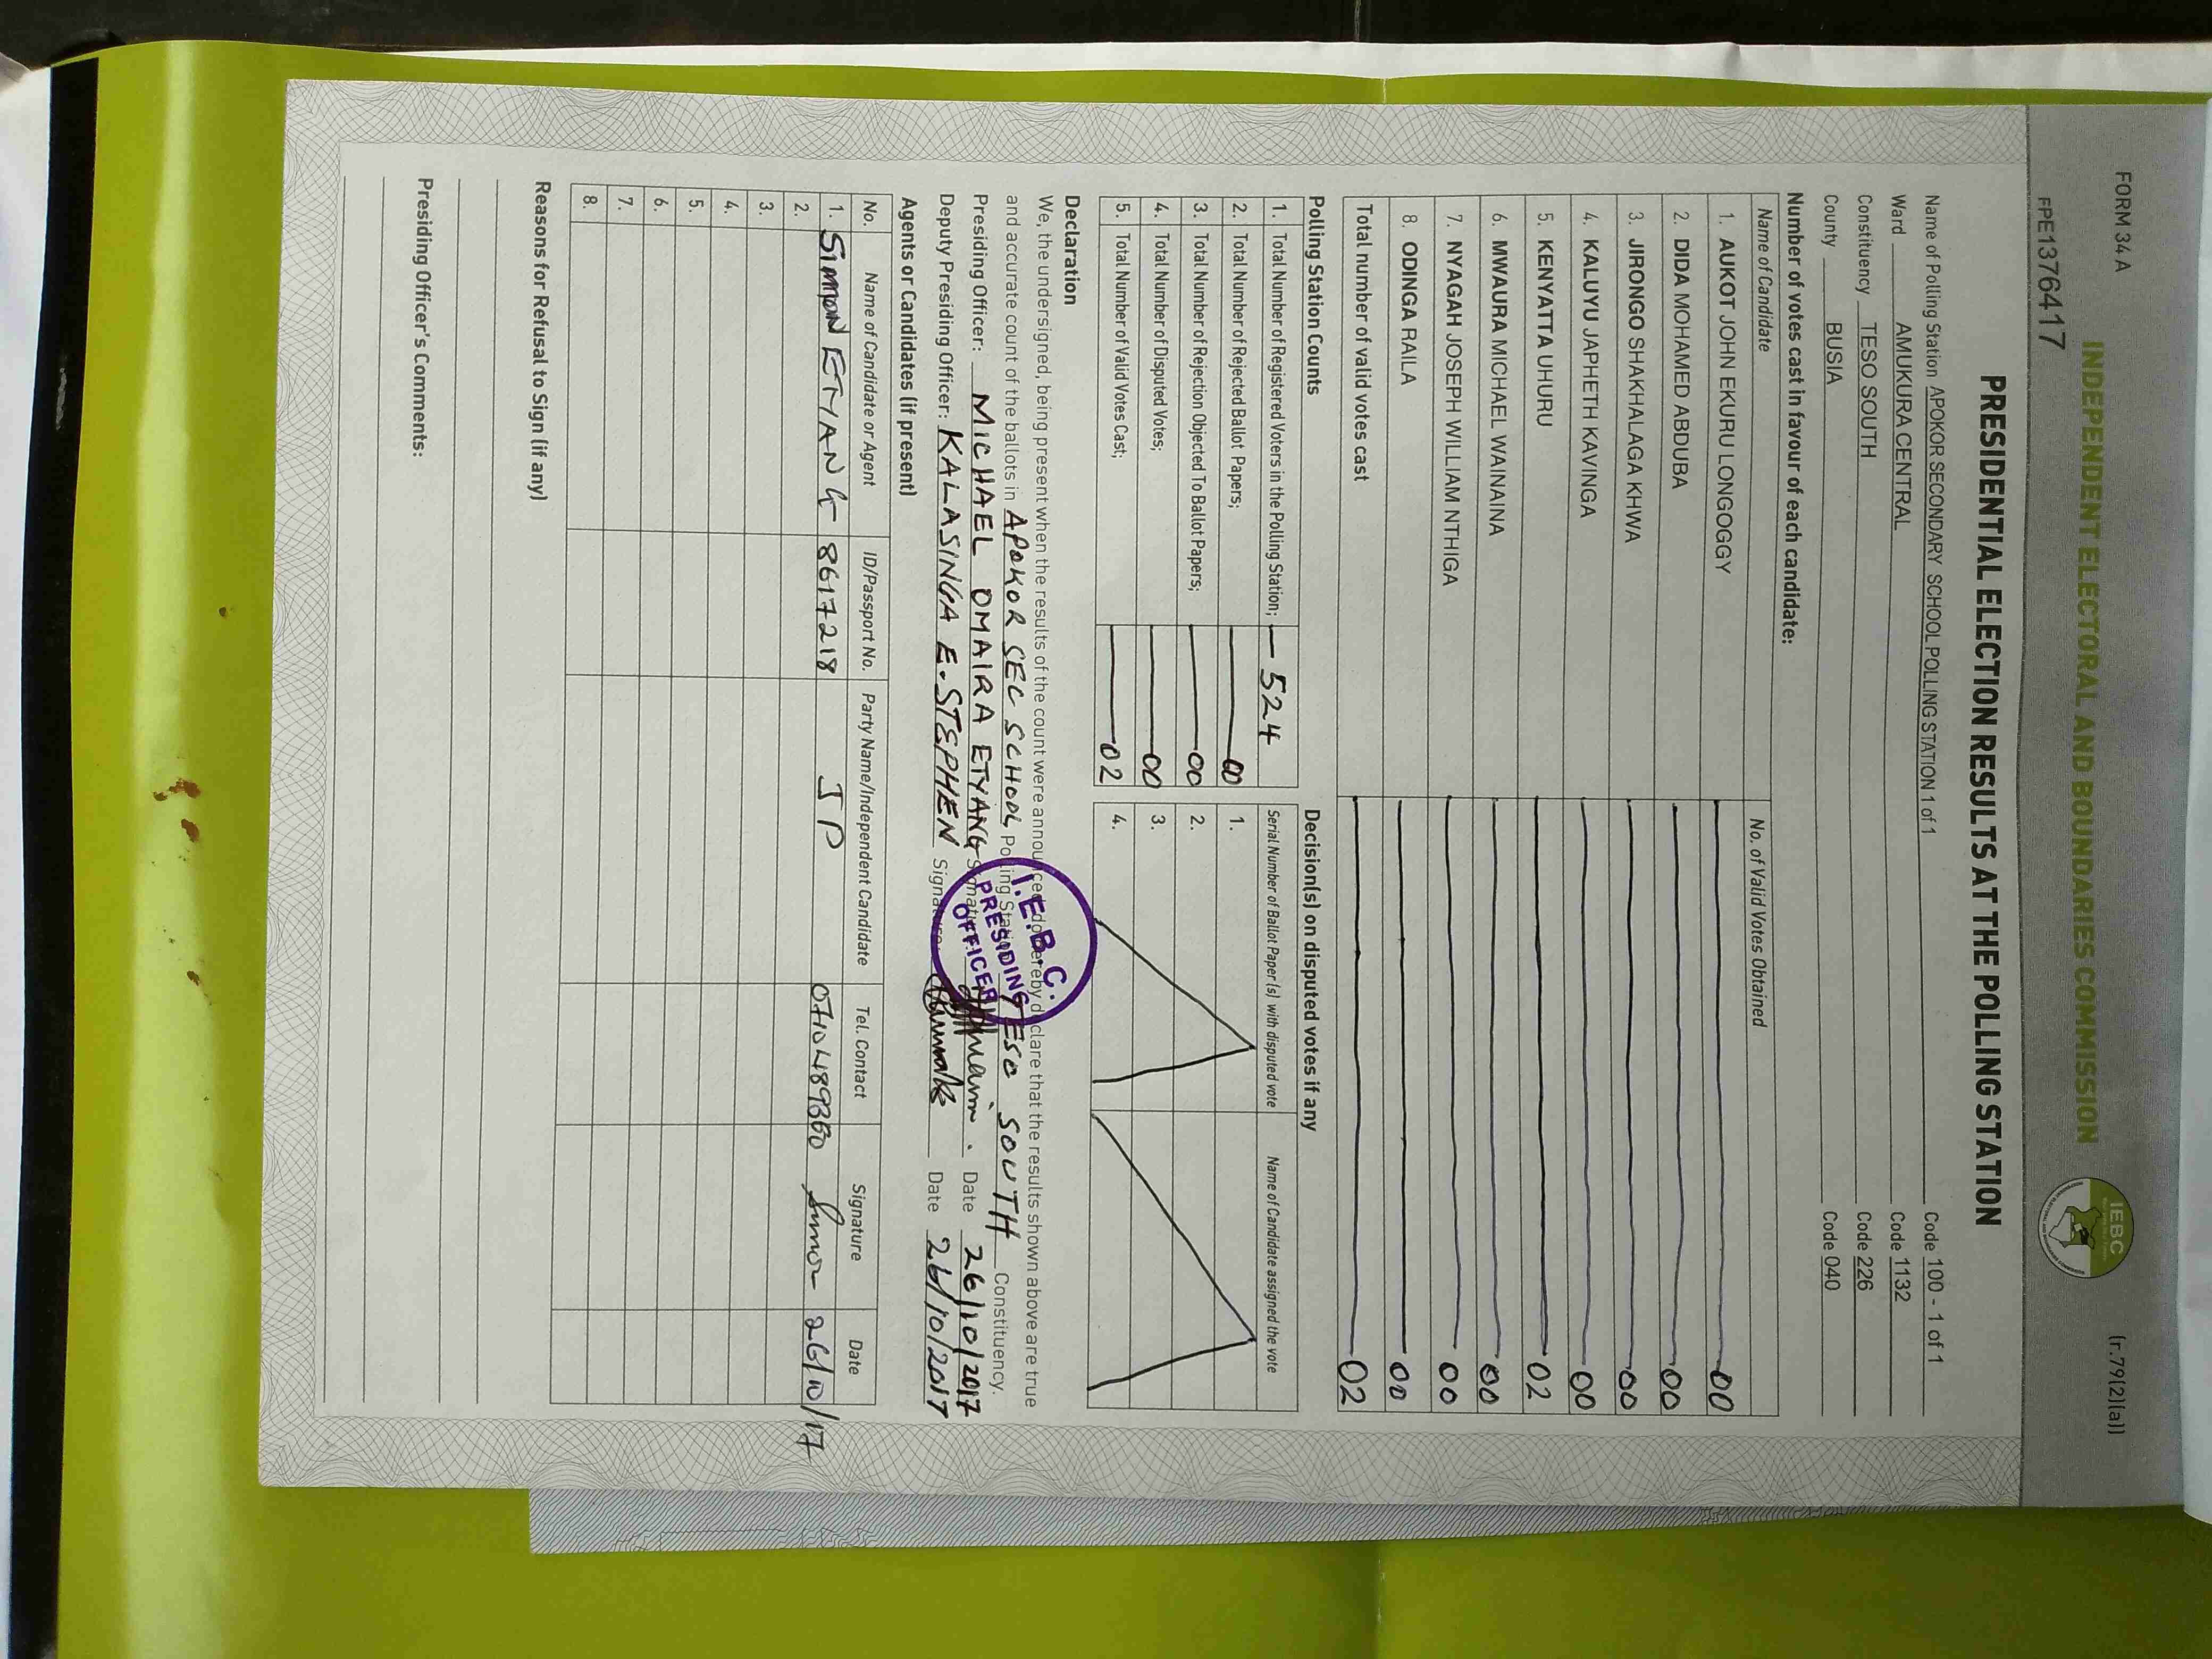 FORM 34 A
(r.79(2)(a))
INDEPENDENT ELECTORAL AND BOUNDARIES COMMISSION
IEBC
FPE1376417
PRESIDENTIAL ELECTION RESULTS AT THE POLLING STATION
Name of Polling Station APOKOR SECONDARY SCHOOL POLLING STATION 1 of 1 Code 100 - 1 of 1
Ward AMUKURA CENTRAL Code 1132
Constituency TESO SOUTH Code 226
County BUSIA Code 040
Number of votes cast in favour of each candidate:
Name of Candidate No. of Valid Votes Obtained
1. AUKOT JOHN EKURU LONGOGGY 00
2. DIDA MOHAMED ABDUBA 00
3. JIRONGO SHAKHALAGA KHWA 00
4. KALUYU JAPHETH KAVINGA 00
5. KENYATTA UHURU 02
6. MWAURA MICHAEL WAINAINA 00
7. NYAGAH JOSEPH WILLIAM NTHIGA 00
8. ODINGA RAILA 00
Total number of valid votes cast 02
Polling Station Counts
1. Total Number of Registered Voters in the Polling Station; 524
2. Total Number of Rejected Ballot Papers; 00
3. Total Number of Rejection Objected To Ballot Papers; 00
4. Total Number of Disputed Votes; 00
5. Total Number of Valid Votes Cast; 02
Decision(s) on disputed votes if any
Serial Number of Ballot Paper(s) with disputed vote Name of Candidate assigned the vote
1.
2.
3.
4.
Declaration
We, the undersigned, being present when the results of the count were announced, do hereby declare that the results shown above are true
and accurate count of the ballots in APOKOR SEC SCHOOL Polling Station TESO SOUTH Constituency.
Presiding Officer: MICHAEL OMAIRA ETYANG Signature Date 26/10/2017
Deputy Presiding Officer: KALASINGA E. STEPHEN Signature Date 26/10/2017
I.E.B.C.
PRESIDING
OFFICER
Agents or Candidates (if present)
No. Name of Candidate or Agent ID/Passport No. Party Name/Independent Candidate Tel. Contact Signature Date
1. SIMON ETYANG 8617218 JP 0710489360 26/10/17
2.
3.
4.
5.
6.
7.
8.
Reasons for Refusal to Sign (if any)
Presiding Officer's Comments: